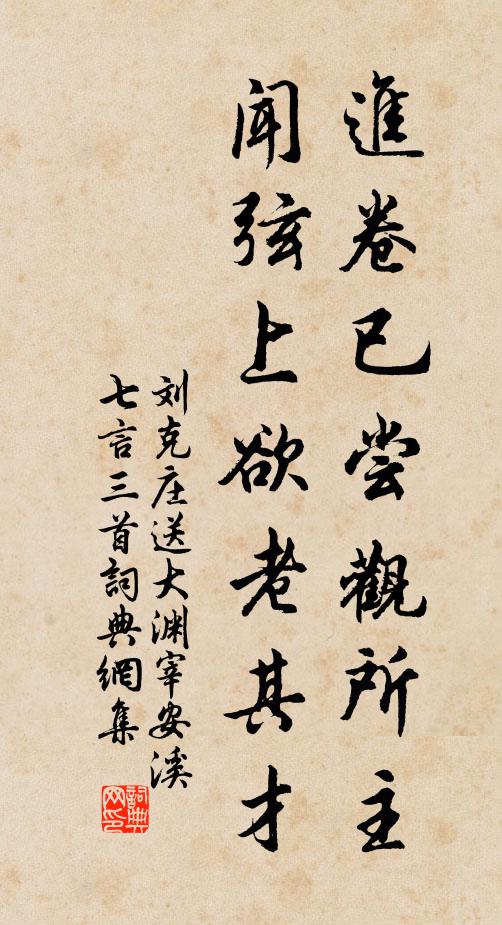 進卷已尝觀所主
闻弦上欲老其才
刘克庄送大渊宰安溪
七言三首詞典網集
詞典
网印